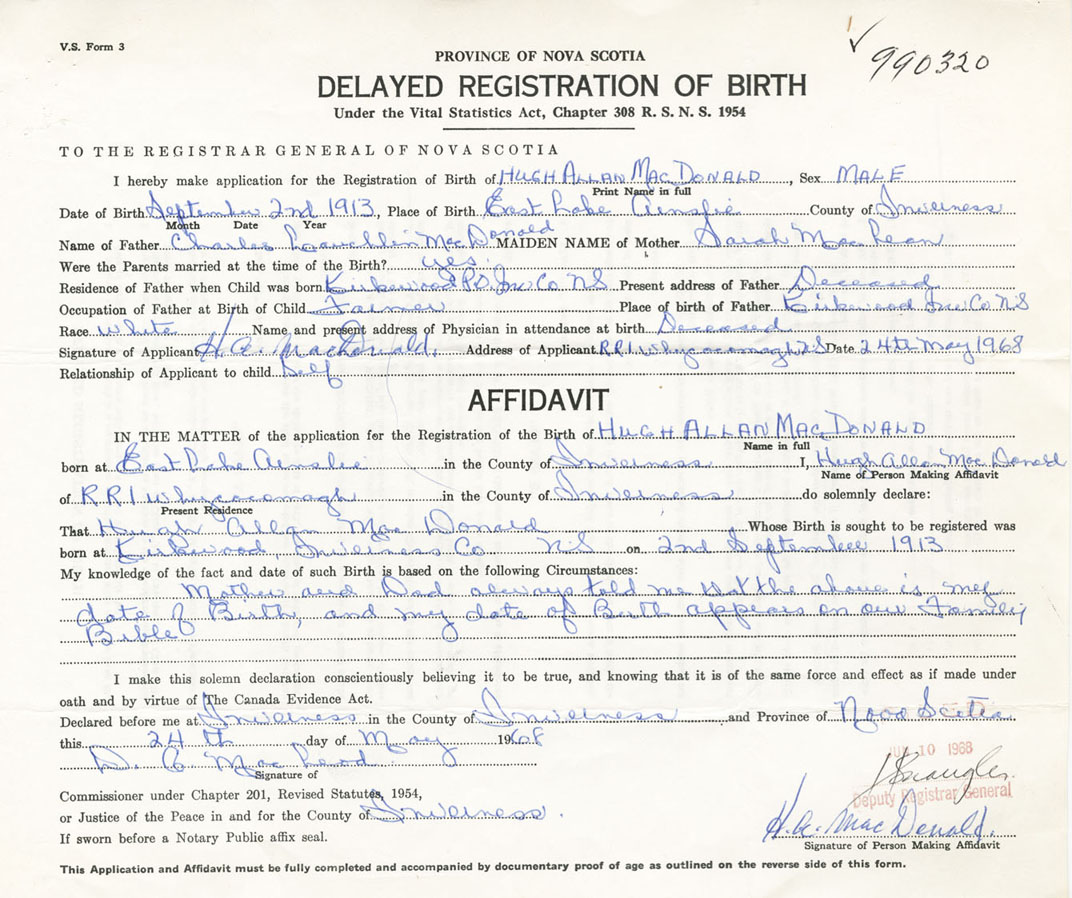 V.S. Form 3
990320
PROVINCE OF NOVA SCOTIA
DELAYED REGISTRATION OF BIRTH
Under the Vital Statistics Act, Chapter 308 R. S. N. S. 1954
TO THE REGISTRAR GENERAL OF NOVA SCOTIA
I hereby make application for the Registration of Birth of HUGH ALLAN MACDONALD, Sex MALE
Print Name in full
Date of Birth September 2nd 1913, Place of Birth East Lake Ainslie County of Inverness
Month Date Year
Name of Father Charles MacDonald MAIDEN NAME of Mother Sarah MacLean
Were the Parents married at the time of the Birth? yes.
Residence of Father when Child was born Kirkwood P.O. Inv Co NS Present address of Father Deceased
Occupation of Father at Birth of Child Farmer Place of birth of Father Kirkwood Inv Co NS
Race White Name and present address of Physician in attendance at birth Deceased
Signature of Applicant H.A. MacDonald. Address of Applicant R.R.1 Whycocomagh NS Date 24th May 1968
Relationship of Applicant to child Self
AFFIDAVIT
IN THE MATTER of the application for the Registration of the Birth of HUGH ALLAN MACDONALD
Name in full
born at East Lake Ainslie in the County of Inverness I, Hugh Allan MacDonald
Name of Person Making Affidavit
of R R 1 Whycocomagh in the County of Inverness do solemnly declare:
Present Residence
That Hugh Allan MacDonald Whose Birth is sought to be registered was
born at Kirkwood, Inverness Co NS on 2nd September 1913
My knowledge of the fact and date of such Birth is based on the following Circumstances:
Mother and Dad always told me that the above is my
date of Birth, and my date of Birth appears on our Family
Bible
I make this solemn declaration conscientiously believing it to be true, and knowing that it is of the same force and effect as if made under
oath and by virtue of The Canada Evidence Act.
Declared before me at Inverness in the County of Inverness and Province of Nova Scotia
this 24th day of May 1968
D. C. MacLeod.
Signature of
Commissioner under Chapter 201, Revised Statutes, 1954,
or Justice of the Peace in and for the County of Inverness.
If sworn before a Notary Public affix seal.
10 1968
Deputy Registrar General
H.A. MacDonald.
Signature of Person Making Affidavit
This Application and Affidavit must be fully completed and accompanied by documentary proof of age as outlined on the reverse side of this form.